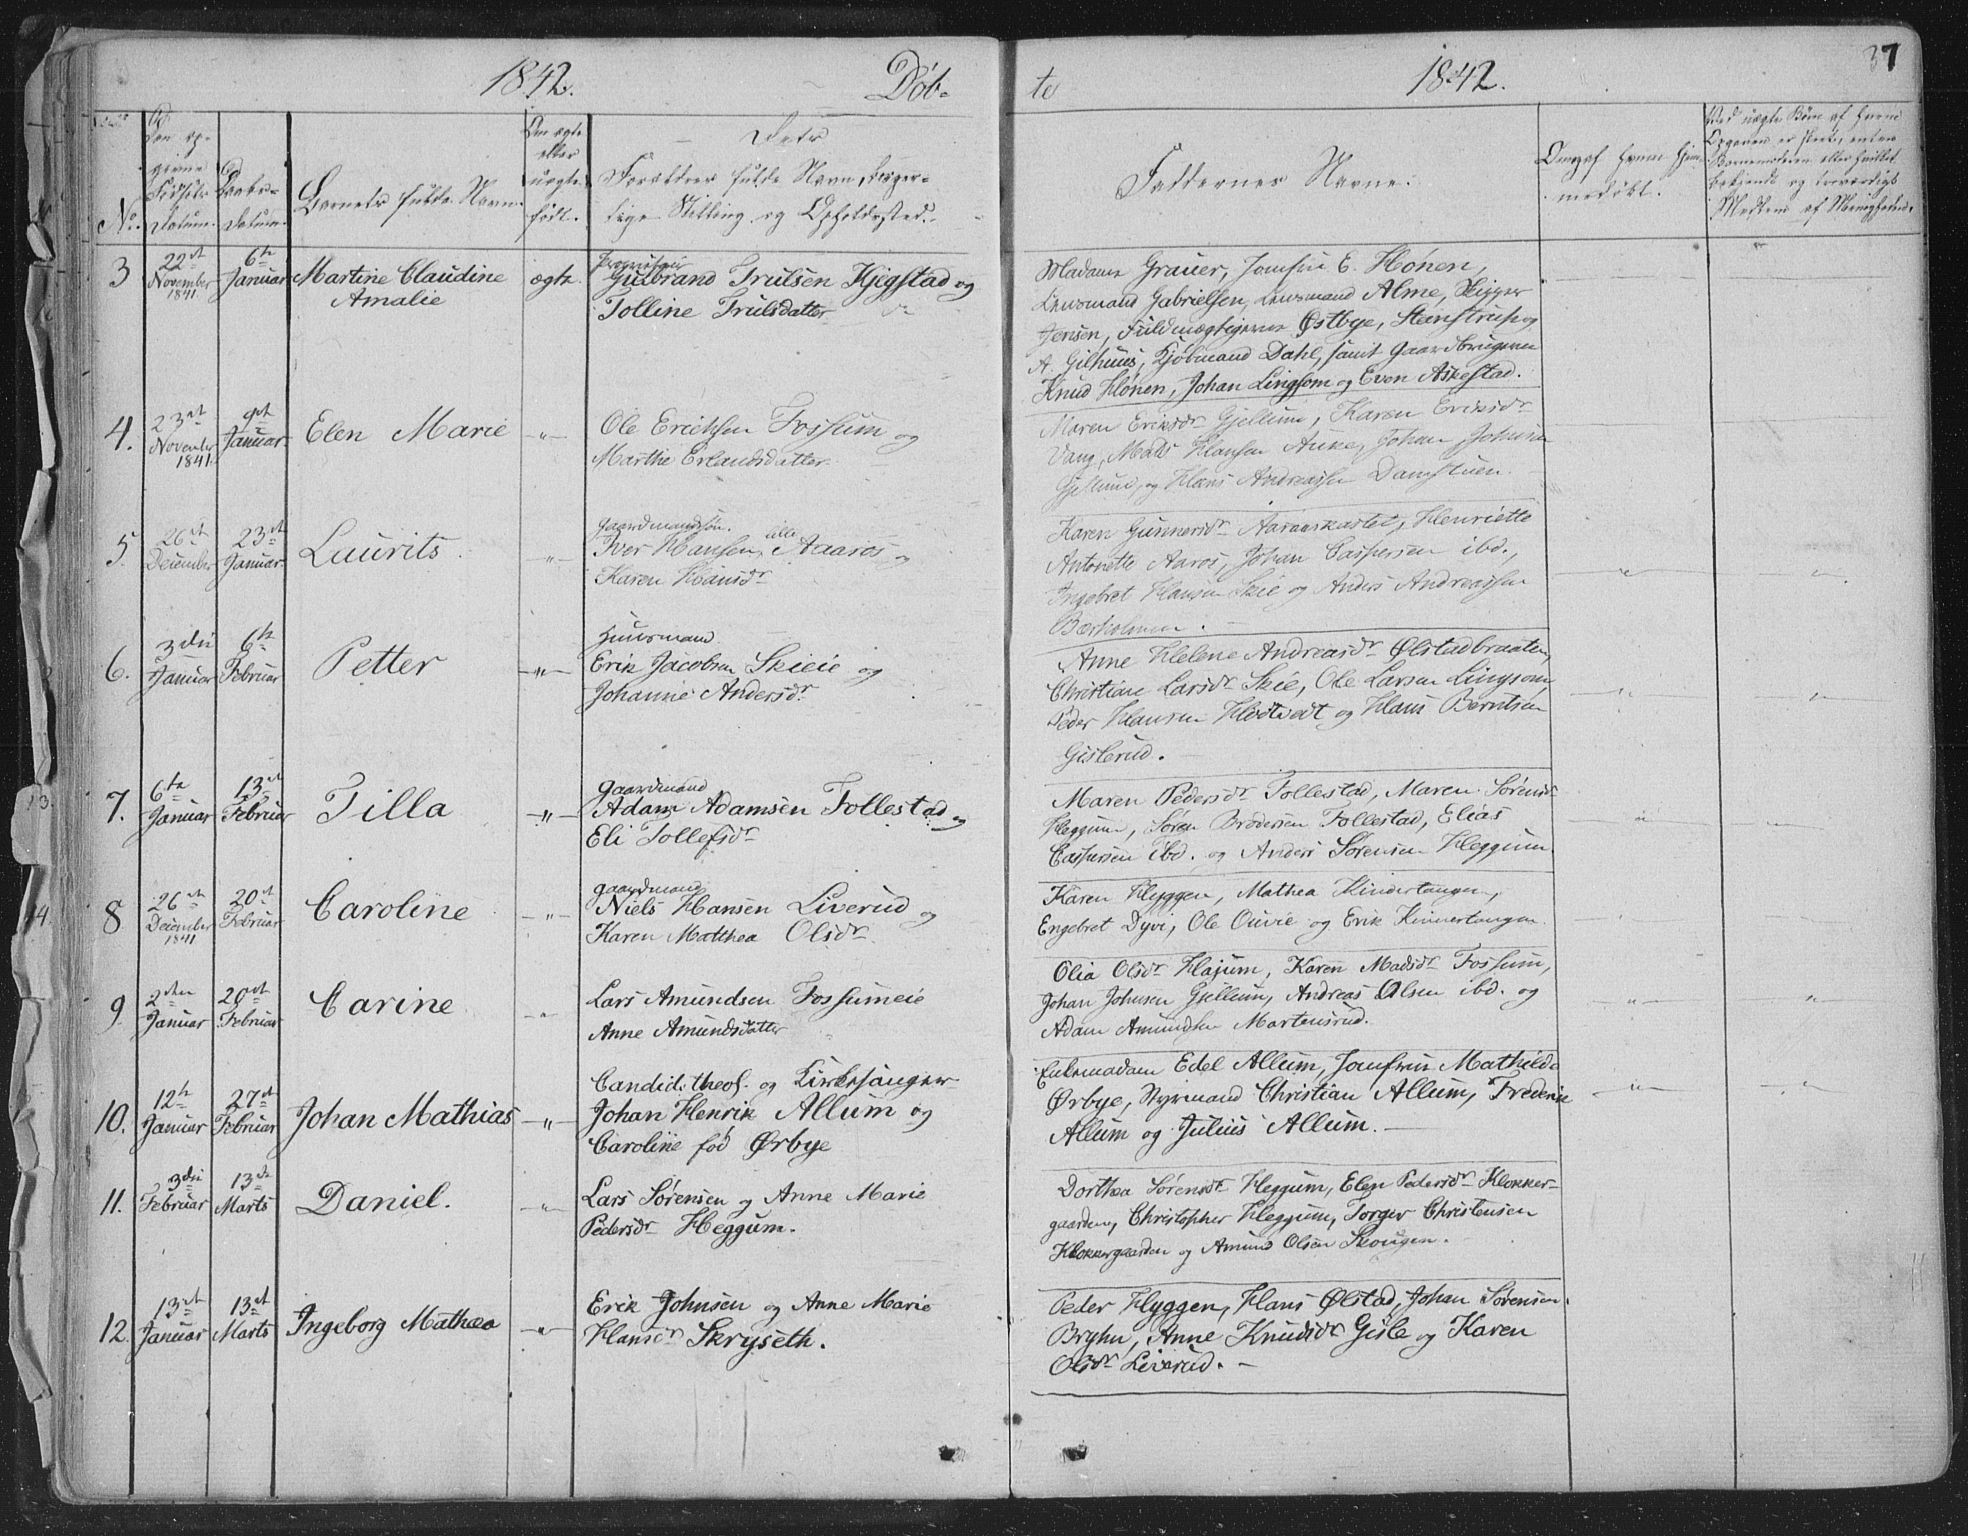 1842. Døb-
te 1842. 37
No.
Den op-
givne
Fødsels
Datum.
Daabs-
Datum.
Barnets fulde Navn.
Om ægte
eller
uægte
født.
Dets
Forældres fulde Navn, borger-
lige Stilling og Opholdssted.
Faddernes Navne.
Om, af hvem hjem-
medøbt.
Ved uægte Børn af hvem
Opgaven er skeet, enten
Barnemoderen eller hvilket
bekjendt og troværdigt
Medlem af Menigheden.
3 22de November 1841. 6te Januar Martine Claudine Amalie ægte
Gulbrand Trulsen Hjegstad og
Tolline Trulsdatter
Madame Grauer, Jomfru E. Hónen,
Lensmand Gabrielsen, Lensmand Alme, Skipper
Jensen, Fuldmægtigerne Østbye, Stenstrup og
A. Gilhuus, Kjøbmand Dahl, samt Gaardbrugerne
Knud Hónen, Johan Lingsom og Even Askestad.
4. 23de November 1841. 9de Januar Elen Marie -"-
Ole Erichsen Fossum og
Marthe Erlandsdatter
Maren Eriksdr Gjellum, Karen Eriksdr
Vang, Mads Hansen Auke, Johan Johnsen
Gjellum, og Hans Andreassen Damstuen.
5. 26de December 23de Januar Laurits -"-
Gaardmandssøn.
Iver Hansen, lille Aaros og
Karen Hansdr
Karen Gunnersdr Aaroskastet, Henriette
Antonette Aaros, Johan Caspersen ibd.,
Ingebret Hansen Skie og Anders Andreassen
Bærholmen.
6. 3die Januar 6te Februar Petter -"-
Huusmand
Erik Jacobsen Skieie og
Johanne Andersdr
Anne Helene Andreasdr Ølstadbraaten,
Christiane Larsdr Skie, Ole Larsen Lingsom,
Peder Hansen Hvedtvedt og Hans Berntsen
Gislerud.
7. 6te Januar 13de Februar Tilla -"-
Gaardmand
Adam Adamsen Follestad og
Eli Tollefsdr
Maren Pedersdr Follestad, Maren Sørensdr
Heggum, Søren Brødersen Follestad, Elias
Caspersen ibd. og Anders Sørensen Heggum.
8 26de December 1841 20de Februar Caroline -"-
Gaardmand
Niels Hansen Liverud og
Karen Matthea Olsdr
Karen Hyggen, Mathea Kindertangen,
Engebret Dyvi, Ole Ouvie og Erik Kinnertangen.
9. 2den Januar 20de Februar Carine -"-
Lars Amundsen Fossumeie
Anne Amundsdatter
Olia Olsdr Hajum, Karen Madsdr Fossum,
Johan Johnsen Gjellum, Andreas Olsen ibd. og
Adam Amundsen Martensrud.
10. 12te Januar 27de Februar Johan Mathias -"-
Candid. theol. og Kirkesanger
Johan Henrik Allum og
Caroline fød Ørbye
Enkemadam Edel Allum, Jomfru Mathilde
Ørbye, Styrmand Christian Allum, Frederik
Allum og Julius Allum.
11. 3die Februar 13de Marts Daniel. -"-
Lars Sørensen og Anne Marie
Pedersdr Heggum.
Dorthea Sørensdr Heggum, Elen Pedersdr Klokker-
gaarden, Christopher Heggum, Torger Christensen
Klokkergaarden og Amund Olsen Skougen.
12. 13de Januar 13de Marts Ingeborg Mathea -"-
Erik Johnsen og Anne Marie
Hansdr Skryseth.
Peder Hyggen, Hans Ølstad, Johan Sørensen
Bryhn, Anne Knudsdr Gisle og Karen
Olsdr Liverud.